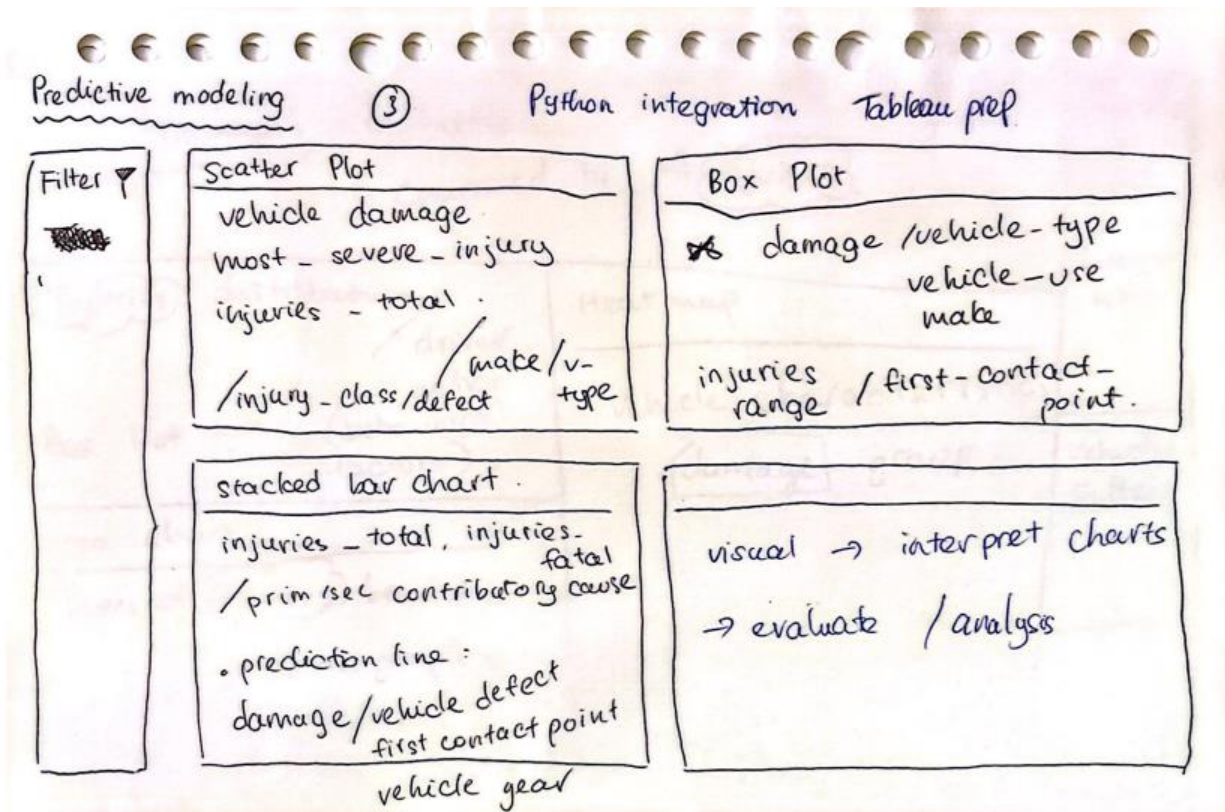 Predictive modeling ③ Python integration Tableau prep
Filter
Scatter Plot
vehicle damage
most_severe_injury
injuries_total
/injury_class/defect /make/v-type
Box Plot
damage /vehicle-type
vehicle-use
make
injuries range / first-contact-point.
stacked bar chart.
injuries_total, injuries-fatal
/prim/sec contributory cause
. prediction line:
damage/vehicle defect
first contact point
vehicle gear
visual → interpret charts
→ evaluate / analysis